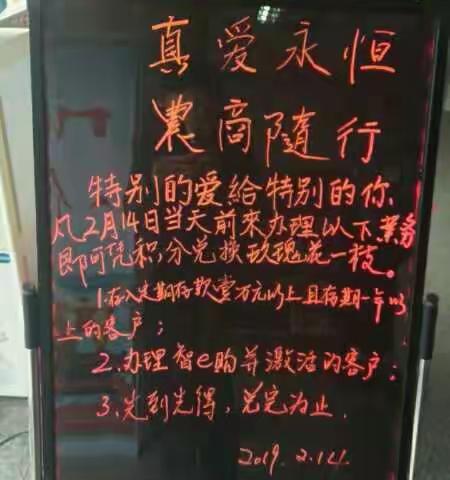 真爱永恒
農商隨行
特别的爱給特别的你
凡2月14日当天前來办理以下業務
即可凭积分兑换玫瑰花一枝。
1.存入定期存款壹万元以上且存期一年以
上的客户;
2.办理智e购并激活的客户;
3.先到先得,兑完为止.
2019.2.14.